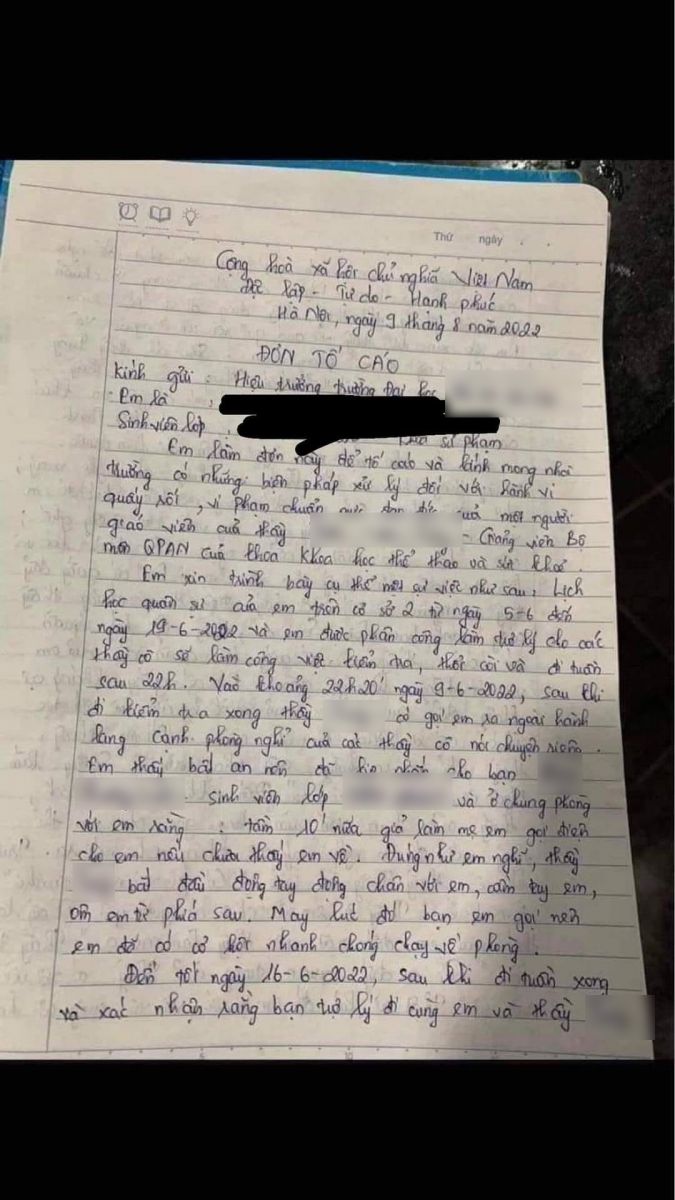 Thứ ngày
Cộng hoà xã hội chủ nghĩa Việt Nam
Độc lập - Tự do - Hạnh phúc
Hà Nội, ngày 9 tháng 8 năm 2022
ĐƠN TỐ CÁO
Kính gửi: Hiệu trưởng trường Đại học
Em là
Sinh viên lớp sư phạm
Em làm đơn này để tố cáo và kính mong nhà
trường có những biện pháp xử lý đối với hành vi
quấy rối, vi phạm chuẩn của một người
giáo viên của thầy - Giảng viên Bộ
môn QPAN của khoa Khoa học thể thao và sức khoẻ.
Em xin trình bày cụ thể một sự việc như sau: Lịch
học quân sự của em trên cơ sở 2 từ ngày 5-6 đến
ngày 19-6-2022 và em được phân công làm trợ lý cho các
thầy cô số làm công việc kiểm tra, thổi còi và đi tuần
sau 22h. Vào khoảng 22h20' ngày 9-6-2022, sau khi
đi kiểm tra xong thầy có gọi em ra ngoài hành
lang cạnh phòng nghỉ của các thầy cô nói chuyện riêng.
Em thấy bất an nên đã kịp nhắn cho bạn
sinh viên lớp và ở chung phòng
với em rằng: tầm 10' nữa giả làm mẹ em gọi điện
cho em nếu chưa thấy em về. Đúng như em nghĩ, thầy
bắt đầu động tay động chân với em, cầm tay em,
ôm em từ phía sau. May lúc đó bạn em gọi nên
em đã có cơ hội nhanh chóng chạy về phòng.
Đến tối ngày 16-6-2022, sau khi đi tuần xong
và xác nhận rằng bạn trợ lý đi cùng em và thầy